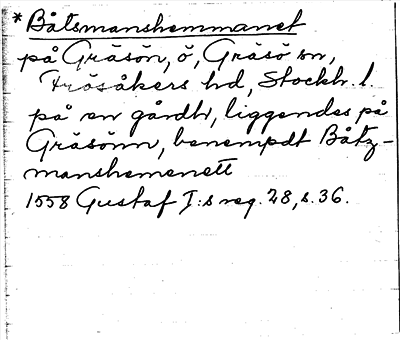 *Båtsmanshemmanet
på Gräsön, ö, Gräsö sn,
Frösåkers hd, Stockh. l.
på en gårdh, liggendes på
Gräsönn, benempdt Båtz-
manshemenett
1558 Gustaf I:s reg. 28, s. 36.